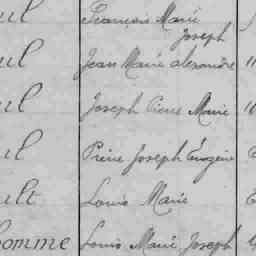 ul François Marie
Joseph
ul Jean Marie alexandre 1
ul Joseph Pierre Marie 1
ul Pierre Joseph Eugène
ult Louis Marie
homme Louis Marie Joseph